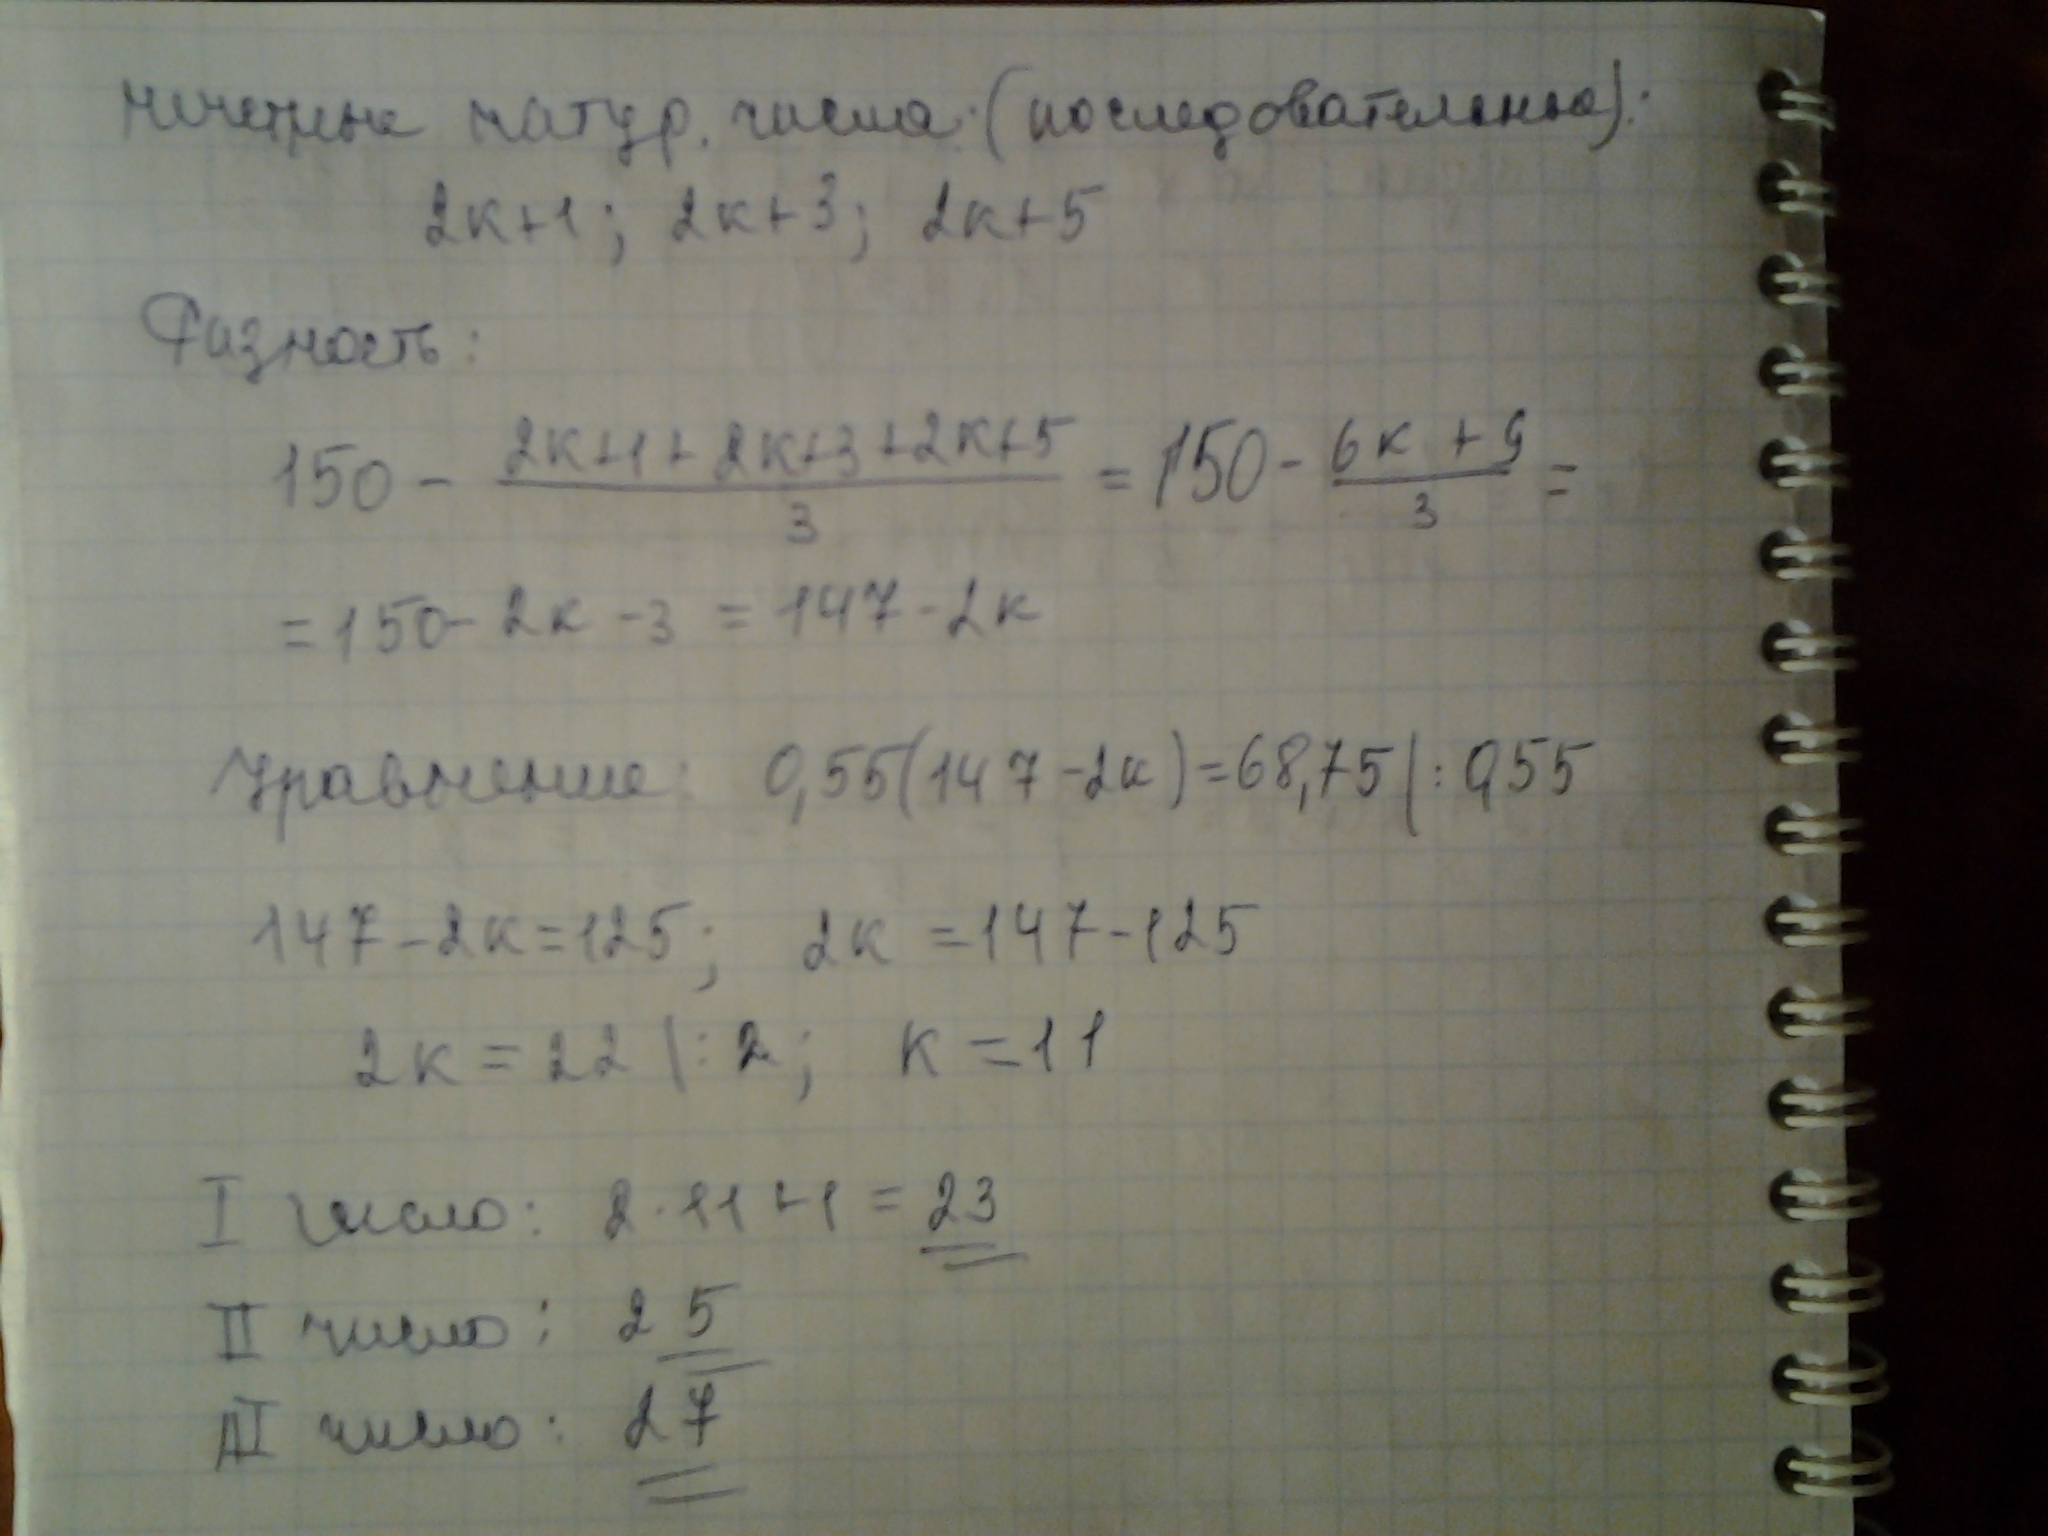 нечетные натур. числа (последовательные):
2к+1; 2к+3; 2к+5
Разность:
150 - (2к+1+2к+3+2к+5)/3 = 150 - (6к+9)/3 =
= 150 - 2к - 3 = 147 - 2к
Уравнение: 0,55(147-2к)=68,75 |: 0,55
147-2к=125; 2к=147-125
2к=22 |:2; к=11
I число: 2·11+1=23
II число: 25
III число: 27